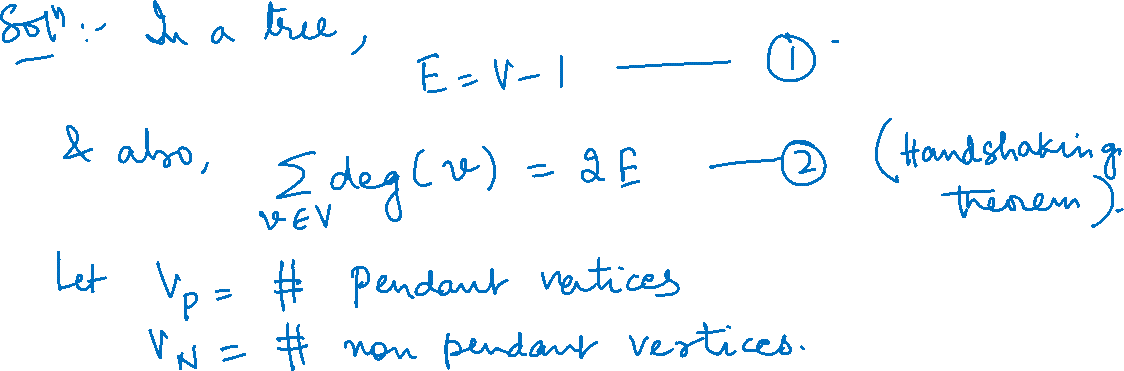 Solⁿ :- In a tree,
E = V - 1 —— ①
& also, Σ deg(v) = 2E —— ② (Handshaking
v∈V theorem).
Let V_P = # Pendant vertices
V_N = # non pendant vertices.